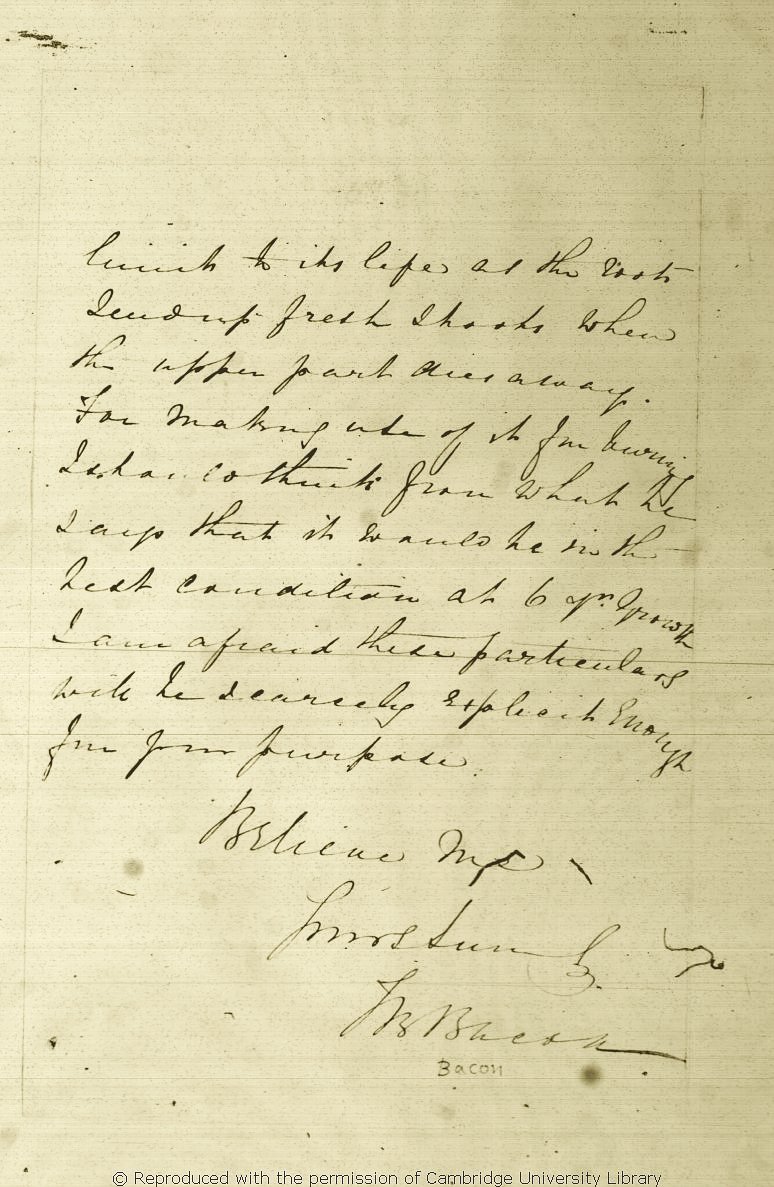 limit to its life as the roots
send up fresh shoots when
the upper part dies away.
For making use of it for burning
I sho. so think from what he
says that it would be in the
best condition at 6 yrs growth
I am afraid these particulars
will be scarcely explicit enough
for your purpose.
Believe me
Yours sincly
Bacon
Bacon
© Reproduced with the permission of Cambridge University Library